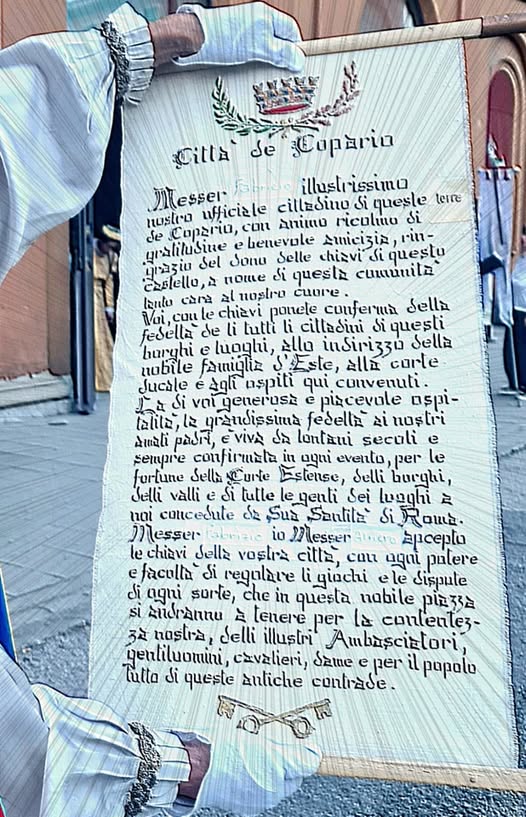 Città de Copario
Messer Fabrizio illustrissimo
nostro ufficiale cittadino di queste terre
de Copario, con animo ricolmo di
gratitudine e benevole amicizia, rin-
grazio del dono delle chiavi di questo
castello, a nome di questa comunità
tanto cara al nostro cuore.
Voi, con le chiavi ponete conferma della
fedeltà de li tutti li cittadini di questi
borghi e luoghi, allo indirizzo della
nobile famiglia d'Este, alla corte
ducale e agli ospiti qui convenuti.
La di voi generosa e piacevole ospi-
talità, la grandissima fedeltà ai nostri
amati padri, è viva da lontani secoli e
sempre confirmata in ogni evento, per le
fortune della Corte Estense, delli borghi,
delli valli e di tutte le genti dei luoghi a
noi concedute da Sua Santità di Roma.
Messer Fabrizio io Messer accepto
le chiavi della vostra città, con ogni potere
e facoltà di regolare li giochi e le dispute
di ogni sorte, che in questa nobile piazza
si andranno a tenere per la contentez-
za nostra, delli illustri Ambasciatori,
gentiluomini, cavalieri, dame e per il popolo
tutto di queste antiche contrade.